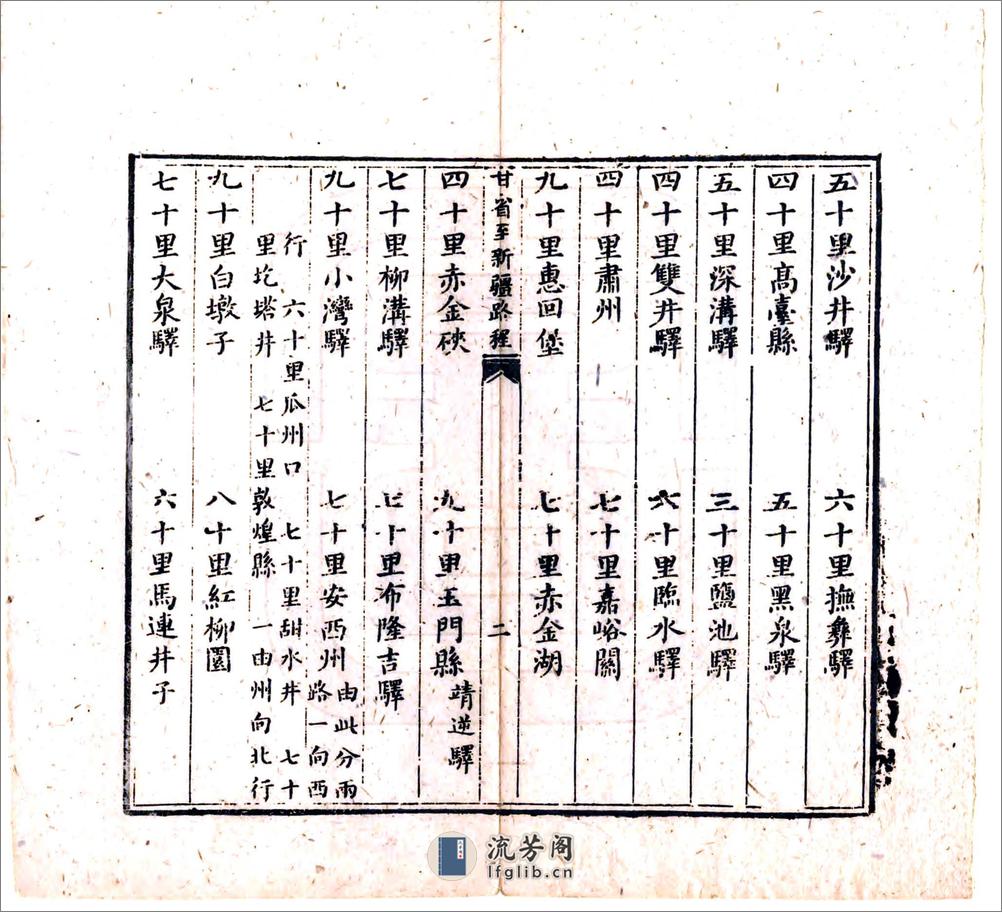 五十里沙井驛 六十里撫彝驛
四十里高臺縣 五十里黑泉驛
五十里深溝驛 三十里鹽池驛
四十里雙井驛 六十里臨水驛
四十里肅州 七十里嘉峪關
九十里惠回堡 七十里赤金湖
甘省至新疆路程 二
四十里赤金硤 九十里玉門縣 靖逆驛
七十里柳溝驛 七十里布隆吉驛
九十里小灣驛 七十里安西州 由此分兩
路一向西
行 六十里瓜州口 七十里甜水井 七十
里圪塔井 七十里敦煌縣 一由州向北行
九十里白墩子 八十里紅柳園
七十里大泉驛 六十里馬連井子
流芳阁
lfglib.cn